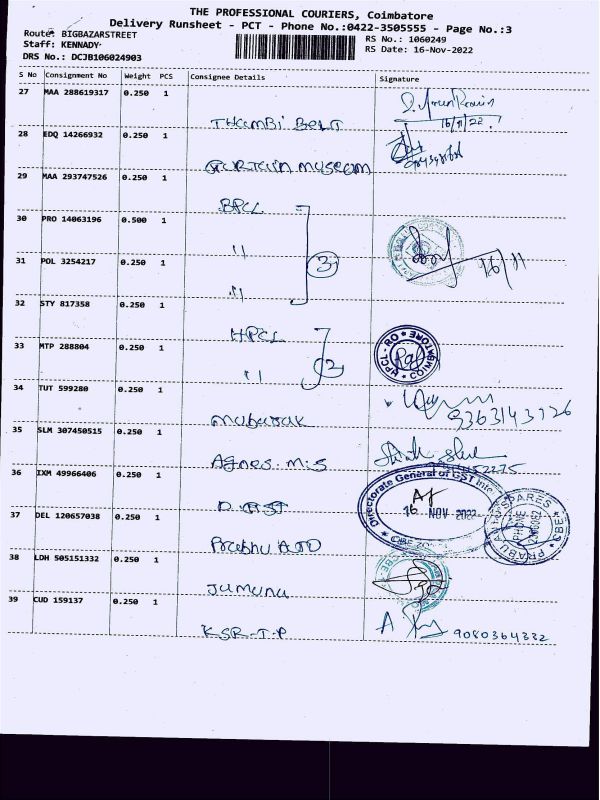 THE PROFESSIONAL COURIERS, Coimbatore
Delivery Runsheet - PCT - Phone No.:0422-3505555 - Page No.:3
Route: BIGBAZARSTREET
RS No.: 1060249
Staff: KENNADY
RS Date: 16-Nov-2022
DRS No.: DCJB106024903
S No Consignment No Weight PCS Consignee Details Signature
27 MAA 288619317 0.250 1
Thambi Belt
16/11/22.
28 EDQ 14266932 0.250 1
museum
29 MAA 293747526 0.250 1
BPCL
30 PRO 14063196 0.500 1
11
3
16/11
31 POL 3254217 0.250 1
11
32 STY 817358 0.250 1
HPCL
33 MTP 288804 0.250 1
11
2
34 TUT 599280 0.250 1
mubarak
9363143126
35 SLM 307450515 0.250 1
Agnes. m.s
36 IXM 49966406 0.250 1
D. GST
Directorate General of GST Inte
16 NOV 2022
37 DEL 120657038 0.250 1
Prabhu Auto
PRABU AUTO SPARES
CBE
38 LDH 505151332 0.250 1
Jumuna
39 CUD 159137 0.250 1
KSR-T.P
9080364332